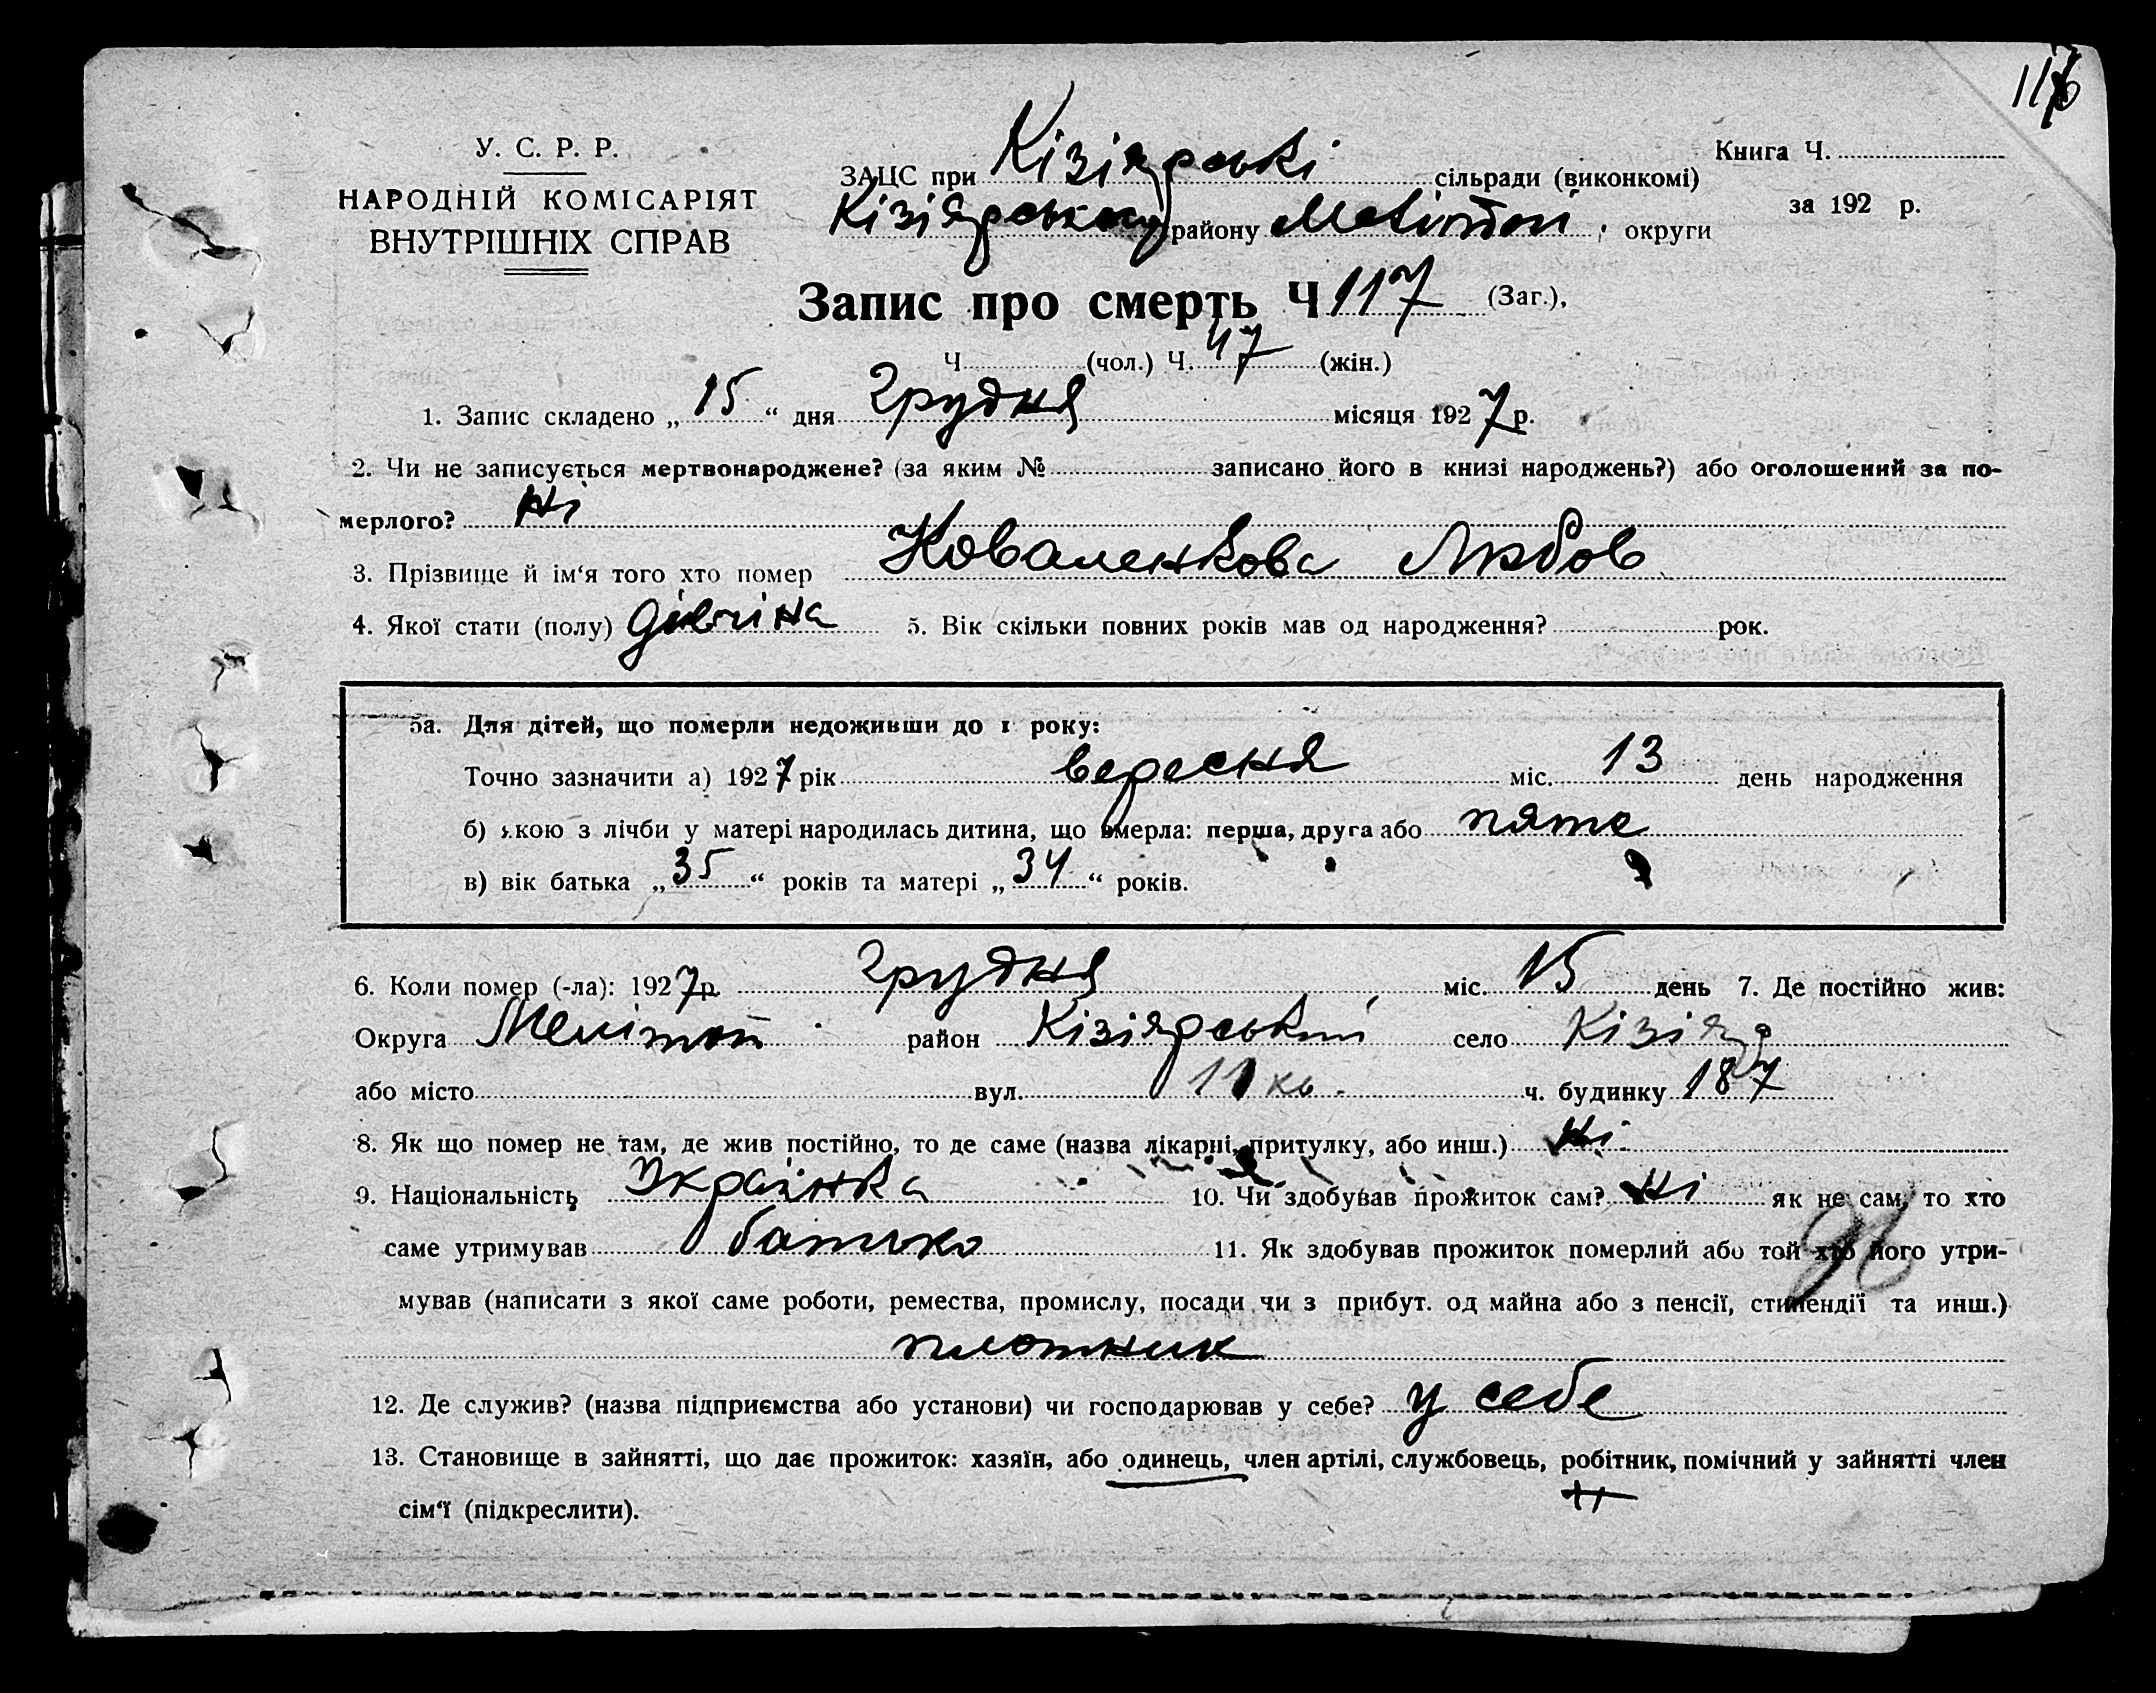 116
У. С. Р. Р.
НАРОДНІЙ КОМІСАРІЯТ
ВНУТРІШНІХ СПРАВ
ЗАЦС при Кізіярські сільради (виконкомі)
Кізіярському району Мелітоп. округи
Книга Ч.
за 192 р.
Запис про смерть Ч 117 (Заг.),
Ч. (чол.) Ч. 47 (жін.)
1. Запис складено „ 15 “ дня грудня місяця 1927 р.
2. Чи не записується мертвонароджене? (за яким № записано його в книзі народжень?) або оголошений за по-
мерлого? Ні
3. Прізвище й ім‘я того хто помер Коваленкова Любов
4. Якої стати (полу) дівчіна 5. Вік скільки повних років мав од народження? рок.
5а. Для дітей, що померли недоживши до 1 року:
Точно зазначити а) 1927 рік вересня міс. 13 день народження
б) якою з лічби у матері народилась дитина, що вмерла: перша, друга або пяте
в) вік батька „ 35 “ років та матері „ 34 “ років.
6. Коли помер (-ла): 1927 р. грудня міс. 15 день 7. Де постійно жив:
Округа Мелітоп район Кізіярський село Кізіяр
або місто вул. 11 кв. ч. будинку 187
8. Як що помер не там, де жив постійно, то де саме (назва лікарні, притулку, або инш.) Ні
9. Національність Українка 10. Чи здобував прожиток сам? Ні як не сам, то хто
саме утримував батько 11. Як здобував прожиток померлий або той хто його утри-
мував (написати з якої саме роботи, ремества, промислу, посади чи з прибут. од майна або з пенсії, стипендії та инш.)
плотник
12. Де служив? (назва підприємства або установи) чи господарював у себе? у себе
13. Становище в зайнятті, що дає прожиток: хазяїн, або одинець, член артілі, службовець, робітник, помічний у зайнятті член
сім‘ї (підкреслити).